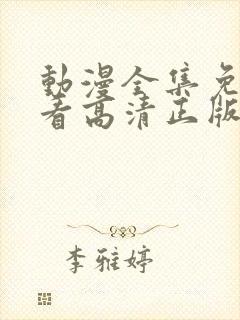 動漫全集免
看高清正版
李雅婷